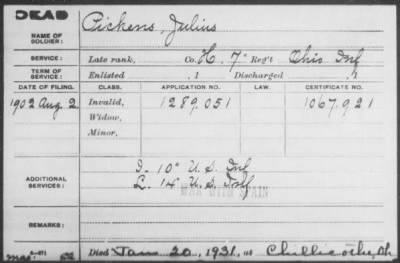 DEAD
NAME OF SOLDIER: Pickens, Julius
SERVICE: Late rank, Co. H, 7" Reg't Ohio Inf
TERM OF SERVICE: Enlisted , 1 Discharged , 1
DATE OF FILING. CLASS. APPLICATION NO. LAW. CERTIFICATE NO.
1902 Aug 2 Invalid, 1289.051 1067.921
Widow,
Minor,
ADDITIONAL SERVICES: I- 10" U.S. Inf
L. 14" U.S. Inf
WAR WITH SPAIN
REMARKS:
Died Jan 20, 1931, at Chillicothe, Oh